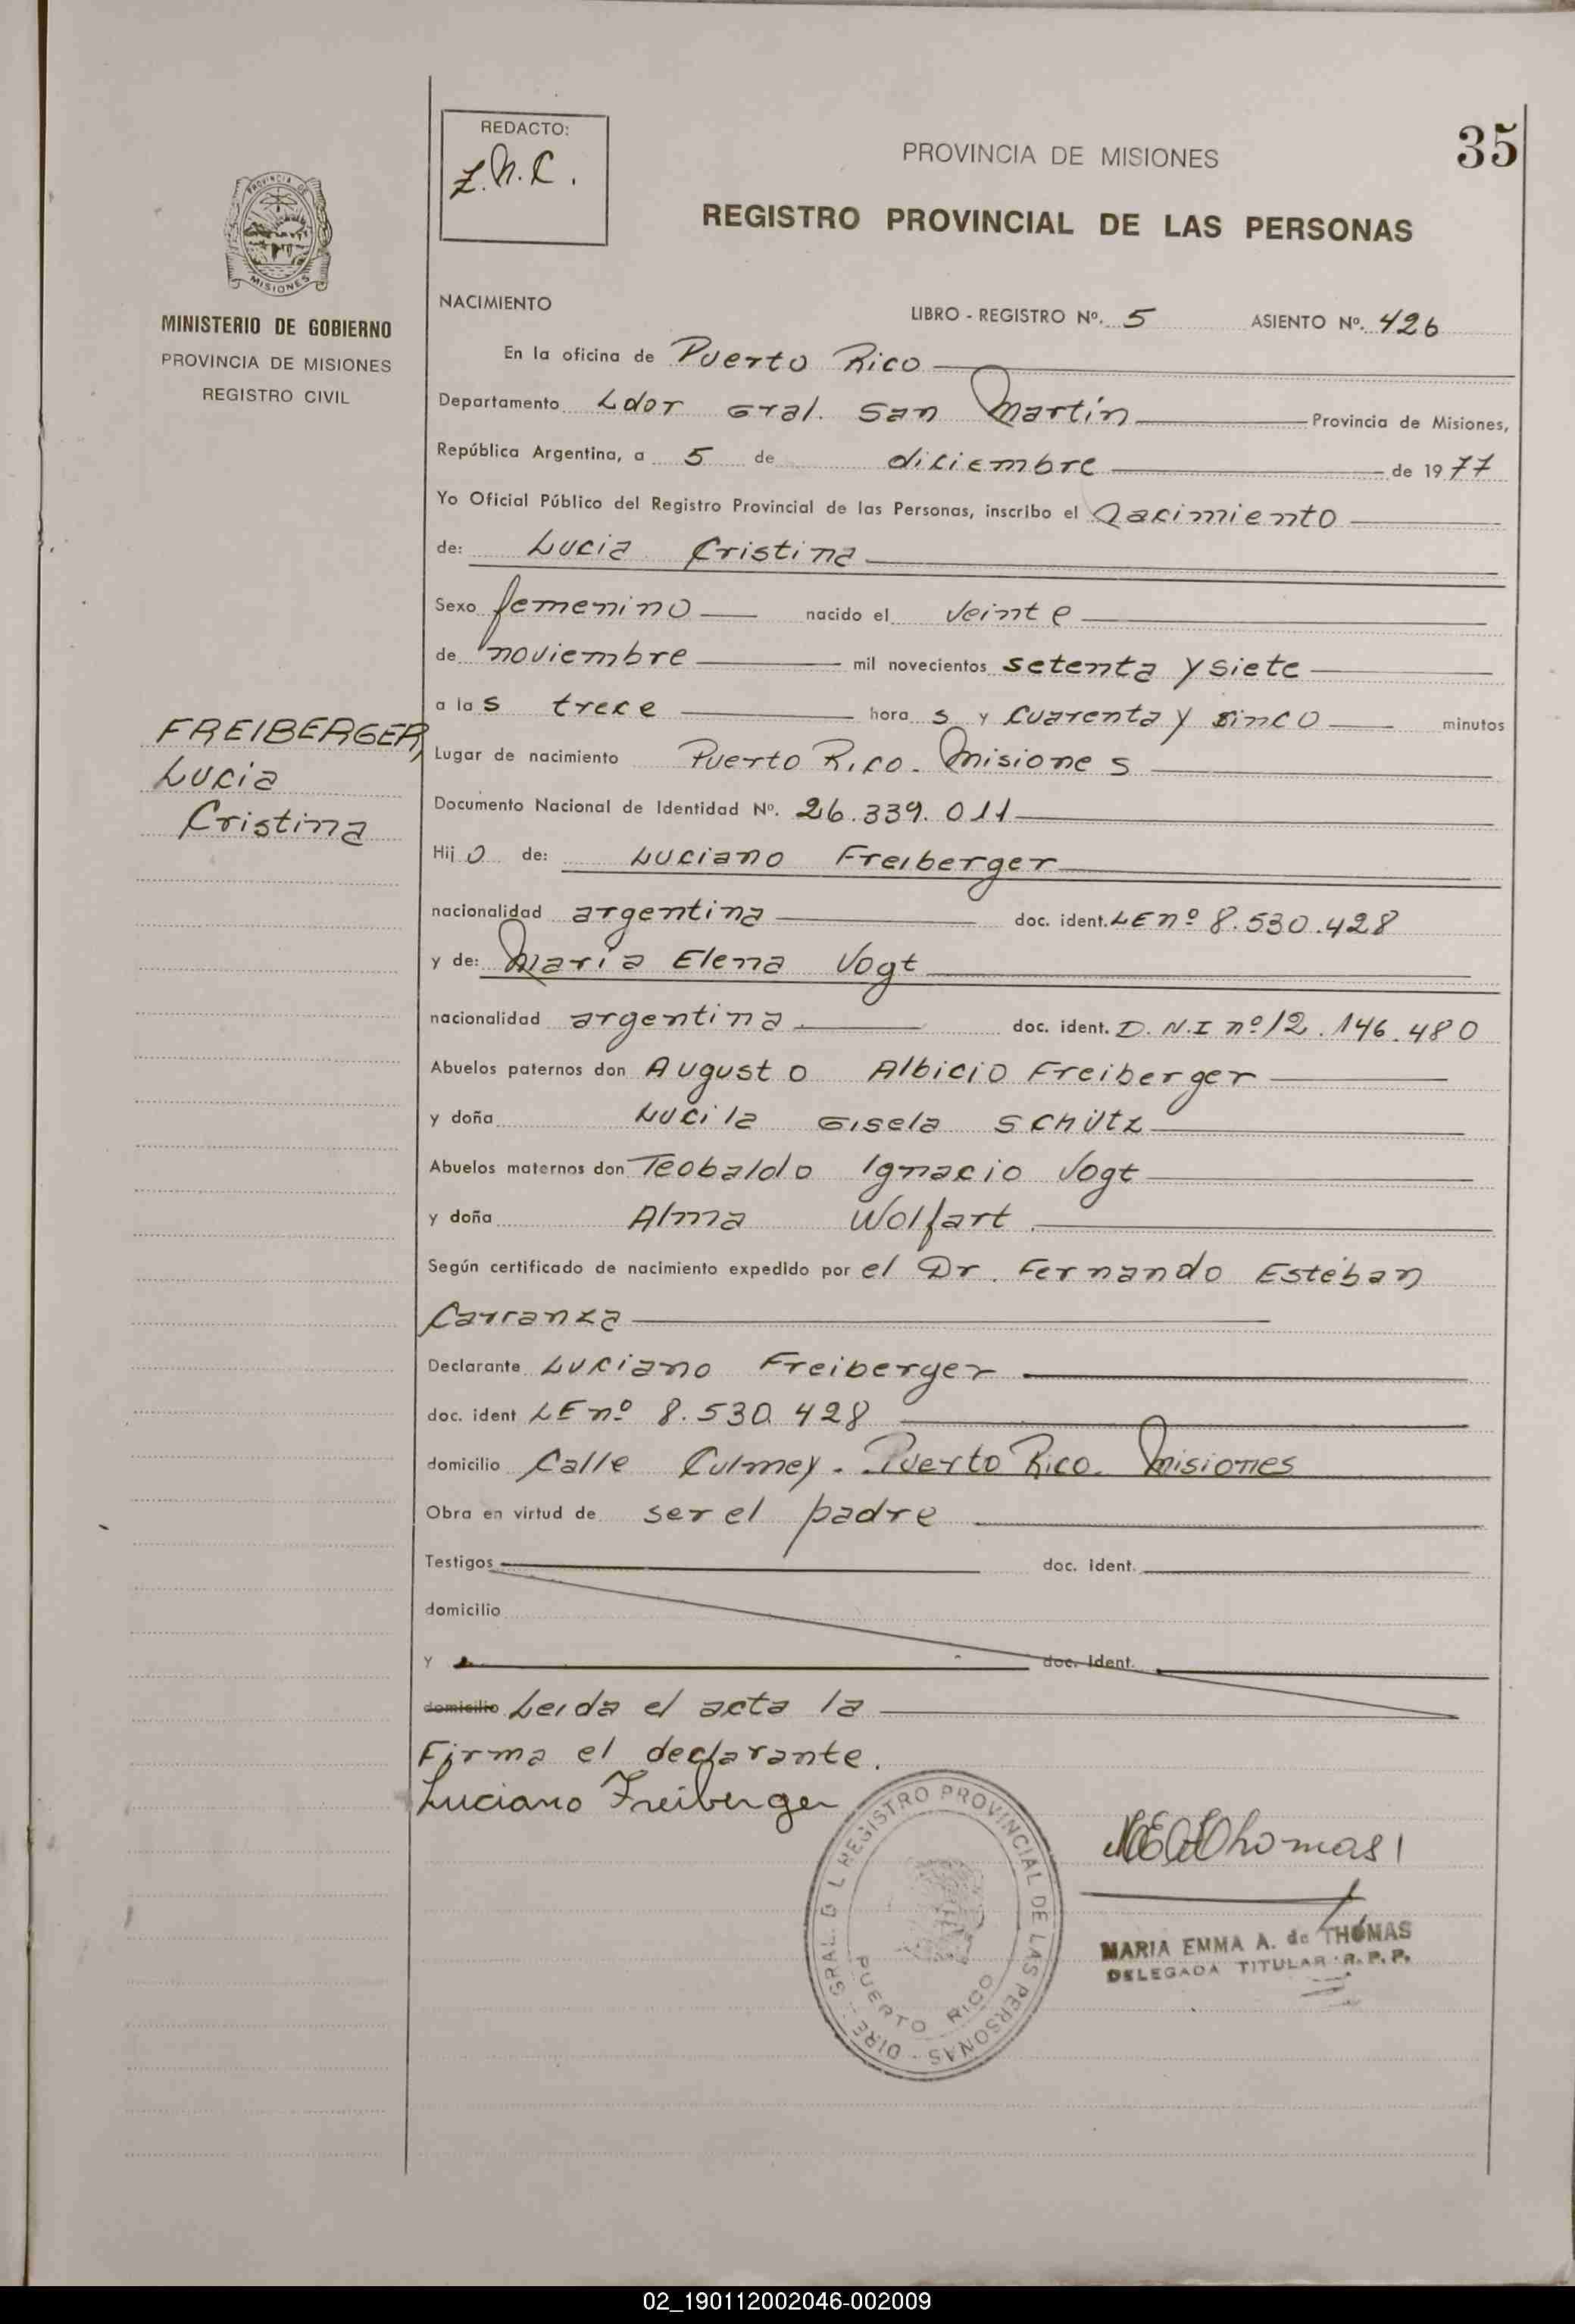 35
REDACTO:
Z.N.C.
PROVINCIA DE MISIONES
REGISTRO PROVINCIAL DE LAS PERSONAS
PROVINCIA DE
MISIONES
MINISTERIO DE GOBIERNO
PROVINCIA DE MISIONES
REGISTRO CIVIL
FREIBERGER,
Lucia
Cristina
NACIMIENTO LIBRO - REGISTRO Nº. 5 ASIENTO Nº. 426
En la oficina de Puerto Rico
Departamento Ldor Gral. San Martín Provincia de Misiones,
República Argentina, a 5 de diciembre de 1977
Yo Oficial Público del Registro Provincial de las Personas, inscribo el nacimiento
de: Lucia Cristina
Sexo femenino nacido el veinte
de noviembre mil novecientos setenta y siete
a las trece horas y cuarenta y cinco minutos
Lugar de nacimiento Puerto Rico. Misiones
Documento Nacional de Identidad Nº. 26.339.011
Hijo de: Luciano Freiberger
nacionalidad argentina doc. ident. LE nº 8.530.428
y de: María Elena Vogt
nacionalidad argentina doc. ident. D.N.I nº 12.146.480
Abuelos paternos don Augusto Albicio Freiberger
y doña Lucila Gisela Schütz
Abuelos maternos don Teobaldo Ignacio Vogt
y doña Alma Wolfart
Según certificado de nacimiento expedido por el Dr. Fernando Esteban
Carranza
Declarante Luciano Freiberger
doc. ident LE nº 8.530.428
domicilio Calle Culmey. Puerto Rico. Misiones
Obra en virtud de ser el padre
Testigos doc. ident.
domicilio
y doc. ident.
domicilio Leida el acta la
Firma el declarante.
Luciano Freiberger
DIRE. GRAL. D L REGISTRO PROVINCIAL DE LAS PERSONAS
PUERTO RICO
Thomas
MARIA EMMA A. de THOMAS
DELEGADA TITULAR R.P.P.
02_190112002046-002009